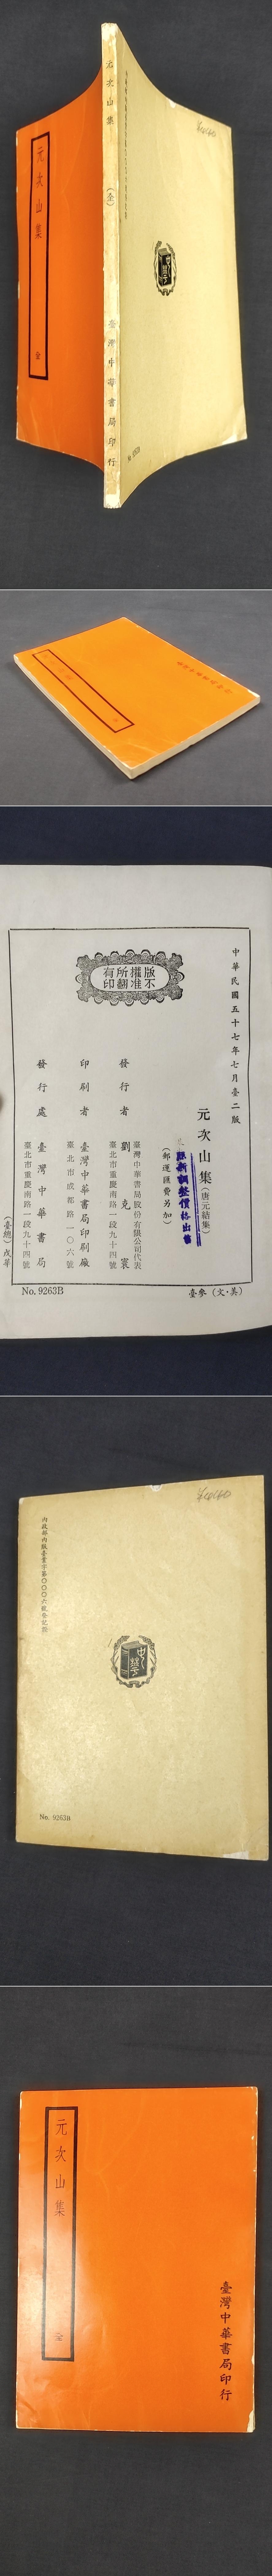 元次山集
全
元次山集
(全)
臺灣中華書局印行
中華民國五十七年七月臺二版
元次山集(唐元結集)
照新調整價格出售
(郵運匯費另加)
臺灣中華書局股份有限公司代表
發行者 劉克寰
臺北市重慶南路一段九十四號
印刷者 臺灣中華書局印刷廠
臺北市成都路一〇六號
發行處 臺灣中華書局
臺北市重慶南路一段九十四號
(臺總)戊華
版權所有
不准翻印
No. 9263B
臺參(文·美)
內政部內版臺業字第〇〇〇六號登記證
No. 9263B
元次山集
全
臺灣中華書局印行